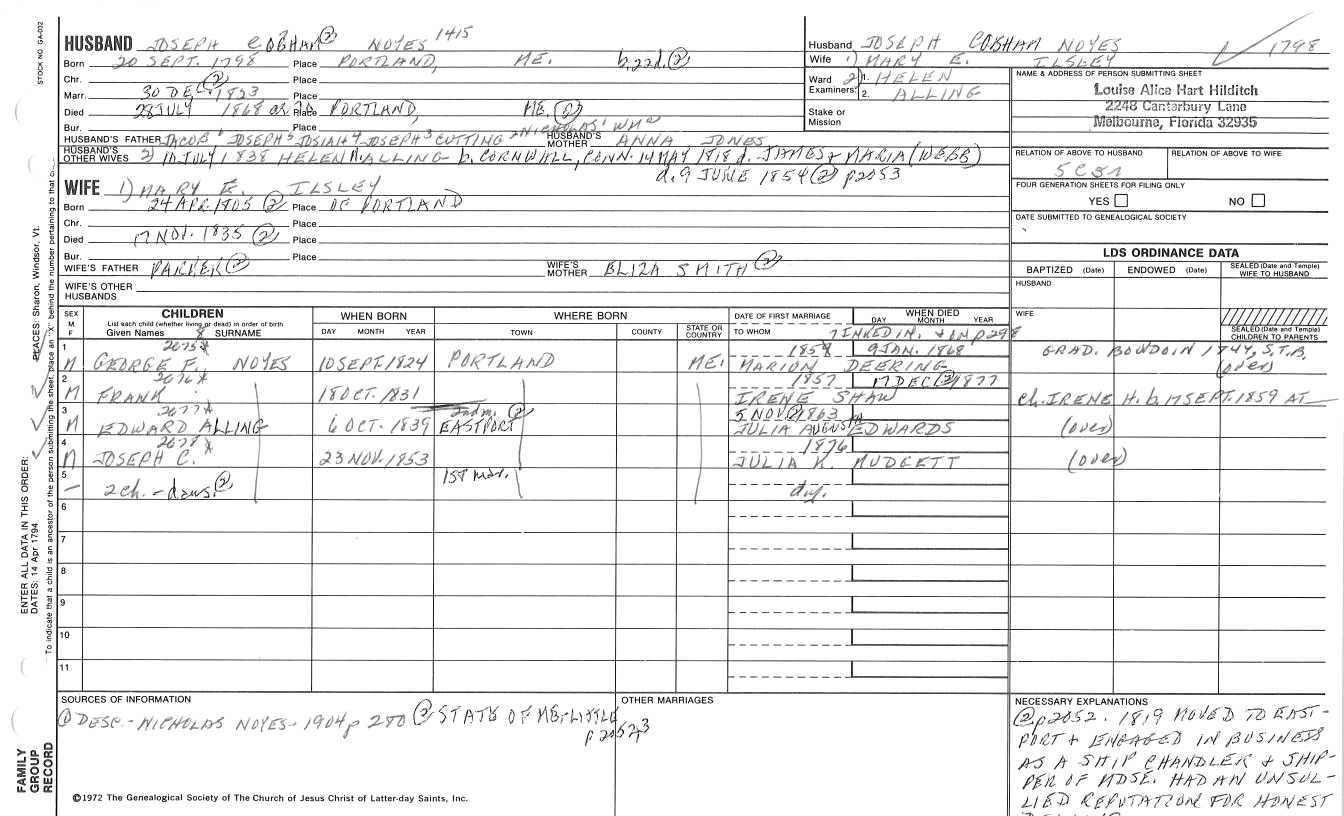 STOCK NO. GA-032
HUSBAND JOSEPH COBHAM② NOYES 1415
Born 20 SEPT. 1798 Place PORTLAND, ME. b.22d.②
Chr. Place
Marr. 30 DEC. ② 1823 Place
Died 28 JULY 1868 or Place PORTLAND, ME. ②
Bur. Place
HUSBAND'S FATHER JACOB⁶ JOSEPH⁵ JOSIAH⁴ JOSEPH³ CUTTING² NICHOLAS¹ WMᵃ HUSBAND'S MOTHER ANNA JONES
HUSBAND'S OTHER WIVES 2) 10 JULY 1838 HELEN M. ALLING b. CORNWALL, CONN. 14 MAY 1818 d. JAMES + MARIA (WEBB)
d. 9 JUNE 1854 ② p2053
WIFE 1) MARY E. ILSLEY
Born 24 APR. 1805 ② Place OF PORTLAND
Chr. Place
Died 17 NOV. 1835 ② Place
Bur. Place
WIFE'S FATHER PARKER ② WIFE'S MOTHER ELIZA SMITH ②
WIFE'S OTHER HUSBANDS
Husband JOSEPH COBHAM NOYES 1798
Wife 1) MARY E. ILSLEY
Ward Examiners: 2) 1. HELEN
2. ALLING
Stake or Mission
NAME & ADDRESS OF PERSON SUBMITTING SHEET
Louise Alice Hart Hilditch
2248 Canterbury Lane
Melbourne, Florida 32935
RELATION OF ABOVE TO HUSBAND RELATION OF ABOVE TO WIFE
5C5R
FOUR GENERATION SHEETS FOR FILING ONLY
YES NO
DATE SUBMITTED TO GENEALOGICAL SOCIETY
LDS ORDINANCE DATA
BAPTIZED (Date) ENDOWED (Date) SEALED (Date and Temple) WIFE TO HUSBAND
HUSBAND
WIFE
SEALED (Date and Temple) CHILDREN TO PARENTS
SEX M F
CHILDREN
List each child (whether living or dead) in order of birth
Given Names 8 SURNAME
WHEN BORN DAY MONTH YEAR
WHERE BORN TOWN COUNTY STATE OR COUNTRY
DATE OF FIRST MARRIAGE TO WHOM
WHEN DIED DAY MONTH YEAR
INKED IN. + ON p298
1 2675x 1854 9 JAN. 1868
M GEORGE F. NOYES 10 SEPT. 1824 PORTLAND ME. MARION DEERING GRAD. BOWDOIN 1844, S.T.B. (over)
2 2676x 1857 17 DEC ② 1877
M FRANK 18 OCT. 1831 IRENE SHAW Ch. IRENE H. b. 17 SEPT. 1859 AT
3 2677x 2nd m. ② 5 NOV ② 1863
M EDWARD ALLING 6 OCT. 1839 EASTPORT JULIA AUGUSTA EDWARDS (over)
4 2678x 1876
M JOSEPH C. 23 NOV. 1853 JULIA K. MUDGETT (over)
5 1ST mar.
– 2 ch. – daus. ② dy.
6
7
8
9
10
11
SOURCES OF INFORMATION
① DESC. - NICHOLAS NOYES - 1904 p 280 ② STATE OF ME - LITTLE
p 2052,3
OTHER MARRIAGES
NECESSARY EXPLANATIONS
② p2052. 1819 MOVED TO EAST-
PORT + ENGAGED IN BUSINESS
AS A SHIP CHANDLER + SHIP-
PER OF MDSE. HAD AN UNSUL-
LIED REPUTATION FOR HONEST
©1972 The Genealogical Society of The Church of Jesus Christ of Latter-day Saints, Inc.
FAMILY GROUP RECORD
ENTER ALL DATA IN THIS ORDER:
DATES: 14 Apr 1794
PLACES: Sharon, Windsor, Vt.
To indicate that a child is an ancestor of the person submitting the sheet, place an "X" behind the number pertaining to that